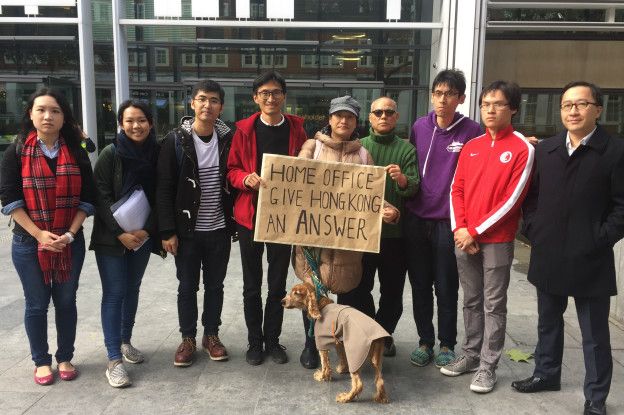 HOME OFFICE
GIVE HONG KONG
AN ANSWER